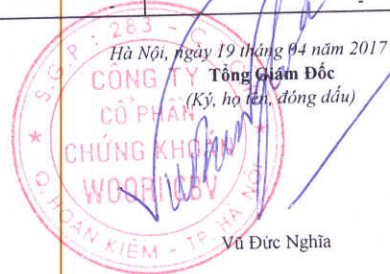 Hà Nội, ngày 19 tháng 04 năm 2017
Tổng Giám Đốc
(Ký, họ tên, đóng dấu)
S.G.P : 283 -
CÔNG TY
CỔ PHẦN
CHỨNG KHOÁN
WOORI CBV
Q. HOÀN KIẾM - TP. HÀ NỘI
Vũ Đức Nghĩa